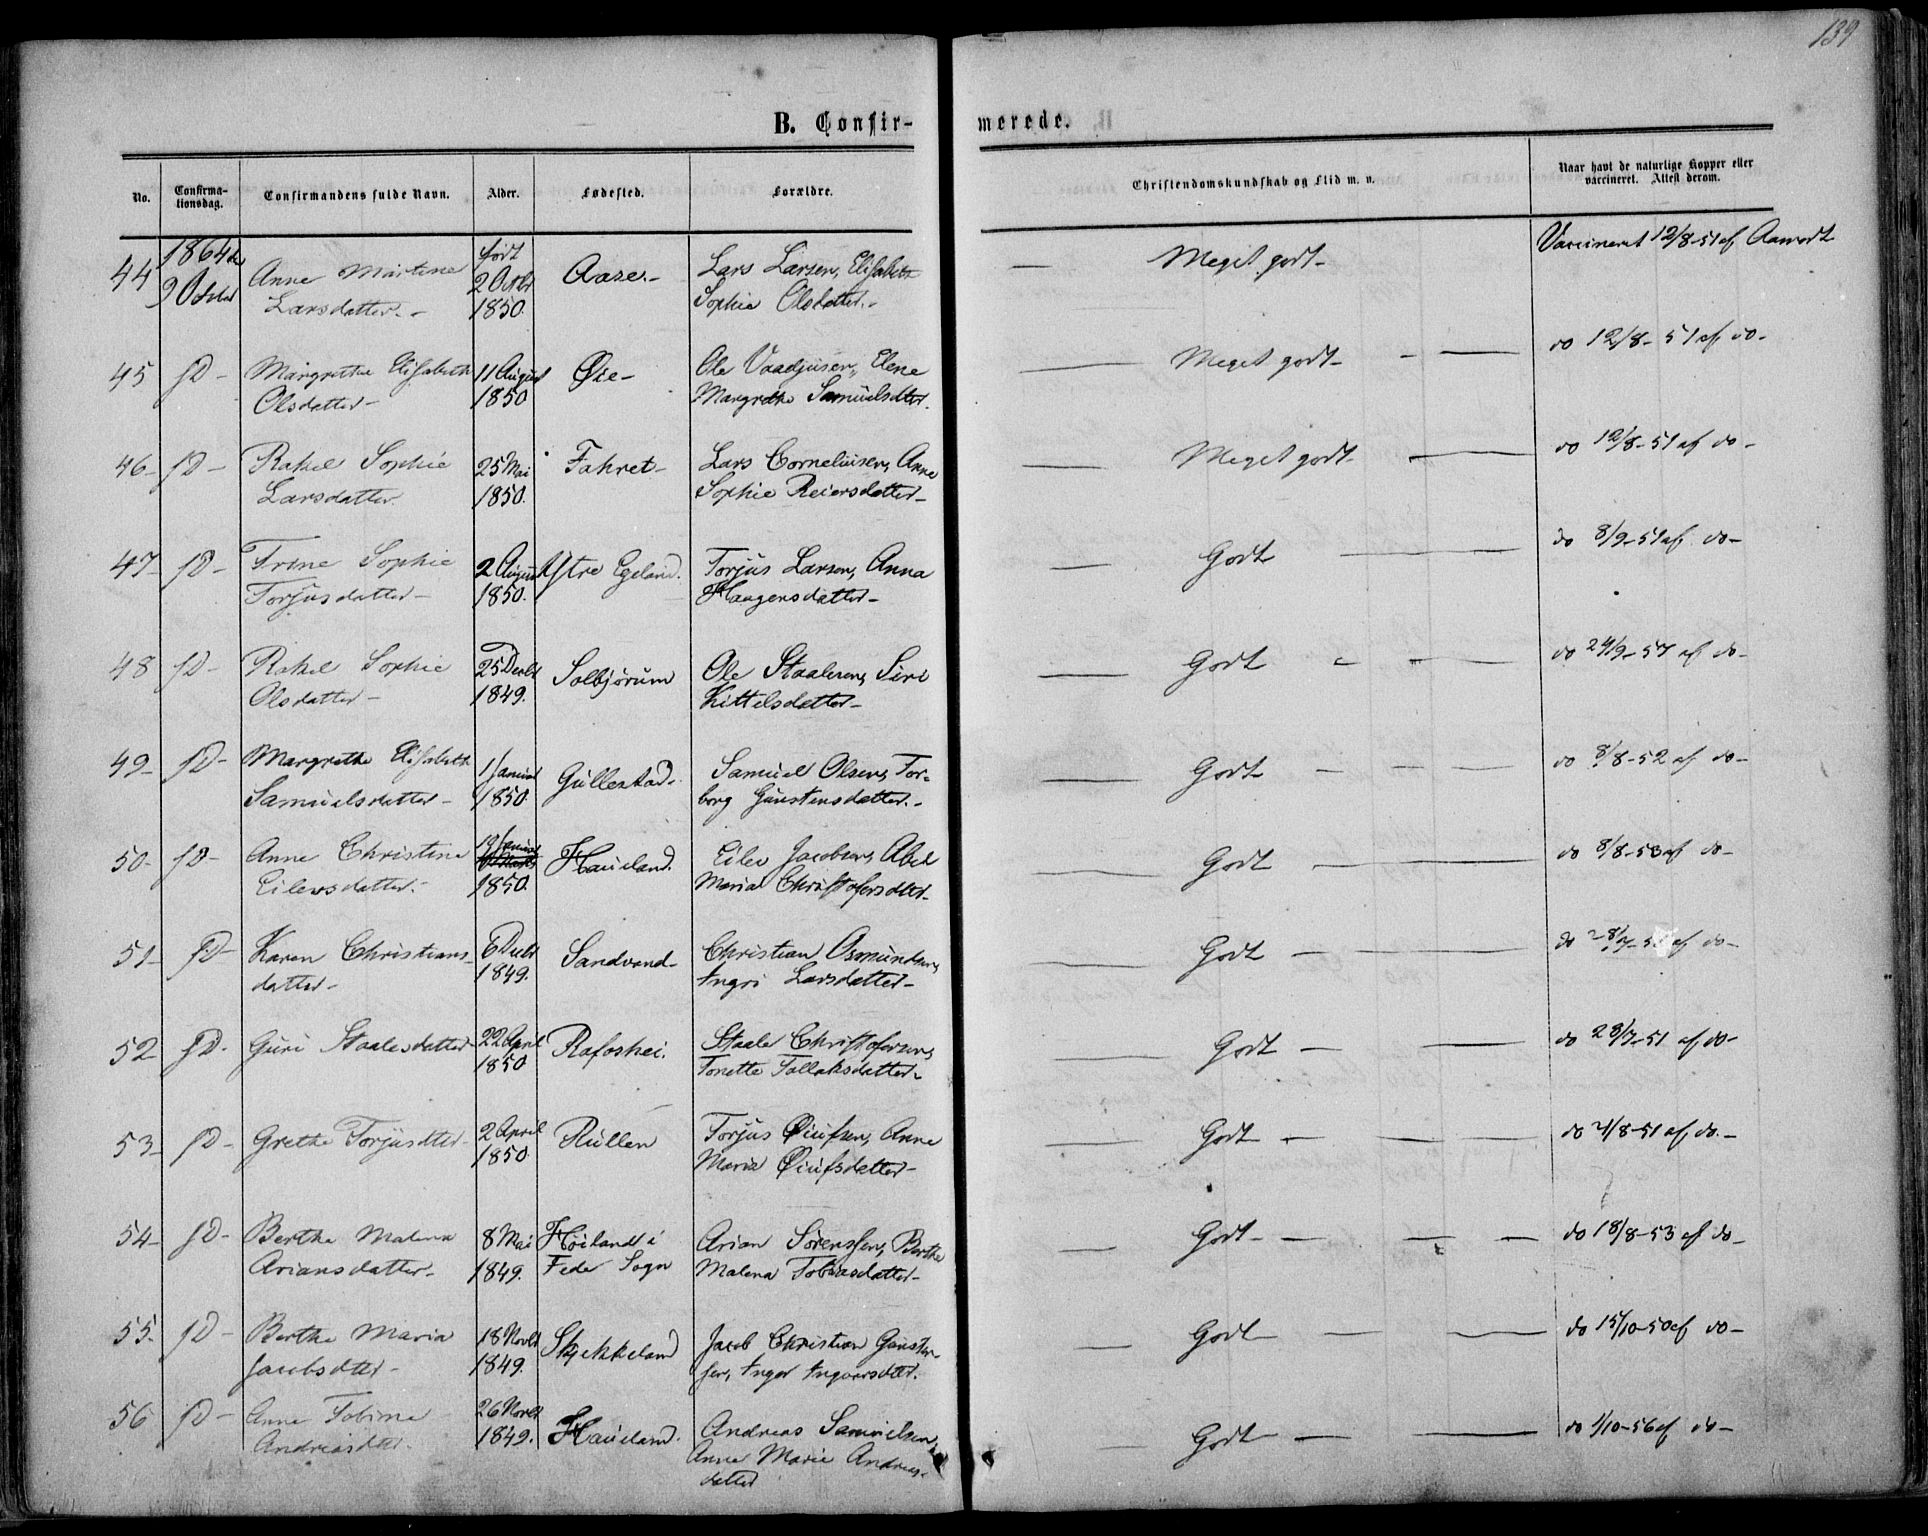 139
B. Confir-
merede.
No.
Confirma-
tionsdag.
Confirmandens fulde Navn.
Alder.
Fødested.
Forældre.
Christendomskundskab og Flid m. v.
Naar havt de naturlige Kopper eller
vaccineret. Attest derom.
1864 de
født
Vaccineret 12/8-51 af Aamodt
44 Anne Martine 2 Octbr Aase.- Lars Larsen, Elisabeth — Meget godt-
9 Octobr Larsdatter.- 1850. Sophie Olsdatter.-
45 do- Margrethe Elisabeth 11 August Øie- Ole Vaadjusen, Elene — Meget godt- - — do 12/8-51 af do-
Olsdatter- 1850 Margrethe Samuelsdtter.
46- do- Rakel Sophie 25 Mai Lars Corneliusen, Anne — Meget godt- — do 12/8-51 af do-
Larsdatter. 1850. Sophie Reiersdatter-
47- do- Trine Sophie 2 August Ystre Egeland. Torjus Larsen, Anna — Godt — do 8/9-51 af do-
Torjusdatter- 1850. Haagensdatter-
48 do- Rakel Sophie 25 Decbr Solbjørum Ole Staalesen, Siri — Godt - — do 24/9-57 af do-
Olsdatter- 1849. Kittelsdatter-
49- do- Margrethe Elisabeth 1 Januar Gullestad. Samuel Olsen, Tor- — Godt - — do 8/8-52 af do-
Samuelsdatter- 1850. borg Gunstensdatter.-
50- do- Anne Christine 19 Januar Haueland. Eilev Jacobsen, Abel — Godt — do 8/8-53 af do-
Eilevsdatter.- 1850. Maria Christofersdtter-
51- do- Karen Christians- 6 Decbr Sandvand- Christian Osmundsen, — Godt - — do 28/7-5 af do-
datter- 1849. Ingri Larsdatter-
52 do- Guri Staalesdatter- 22 April Rafoshei. Staale Christofersen, — Godt - — do 28/7-51 af do-
1850 Tonette Tollaksdatter-
53- do- Grethe Torjusdtter- 2 April Rullen Torjus Øiufsen, Anne — Godt - — do 4/8-51 af do.-
1850 Maria Øiufsdatter-
54- do- Berthe Malena 8 Mai Høiland i Arian Sørenssen, Berthe — Godt- - — do 18/8-53 af do-
Ariansdatter- 1849. Feder Sogn Malena Tobiasdatter-
55- do- Berthe Maria 18 Novbr Skjekkeland Jacob Christian Gunsten- — Godt - — do 15/10-50 af do-
Jacobsdtter- 1849. sen, Inger Ingvarsdtter.
56 do- Anne Tobine 26 Novbr Haueland. Andreas Samuelsen, — Godt - — do 1/10-56 af do-
Andreasdtter. 1849. Anne Marie Andreas-
datter